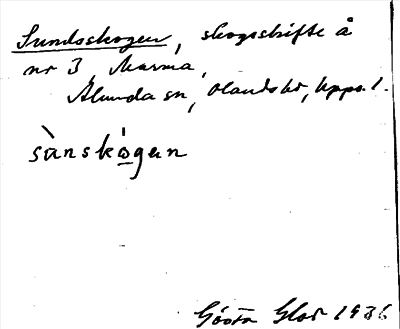 Sundsskogen, skogsskifte å
nr 3, Marma,
Alunda sn, Olands hd, Upps. l.
sùnskógen
Gösta Glas 1936